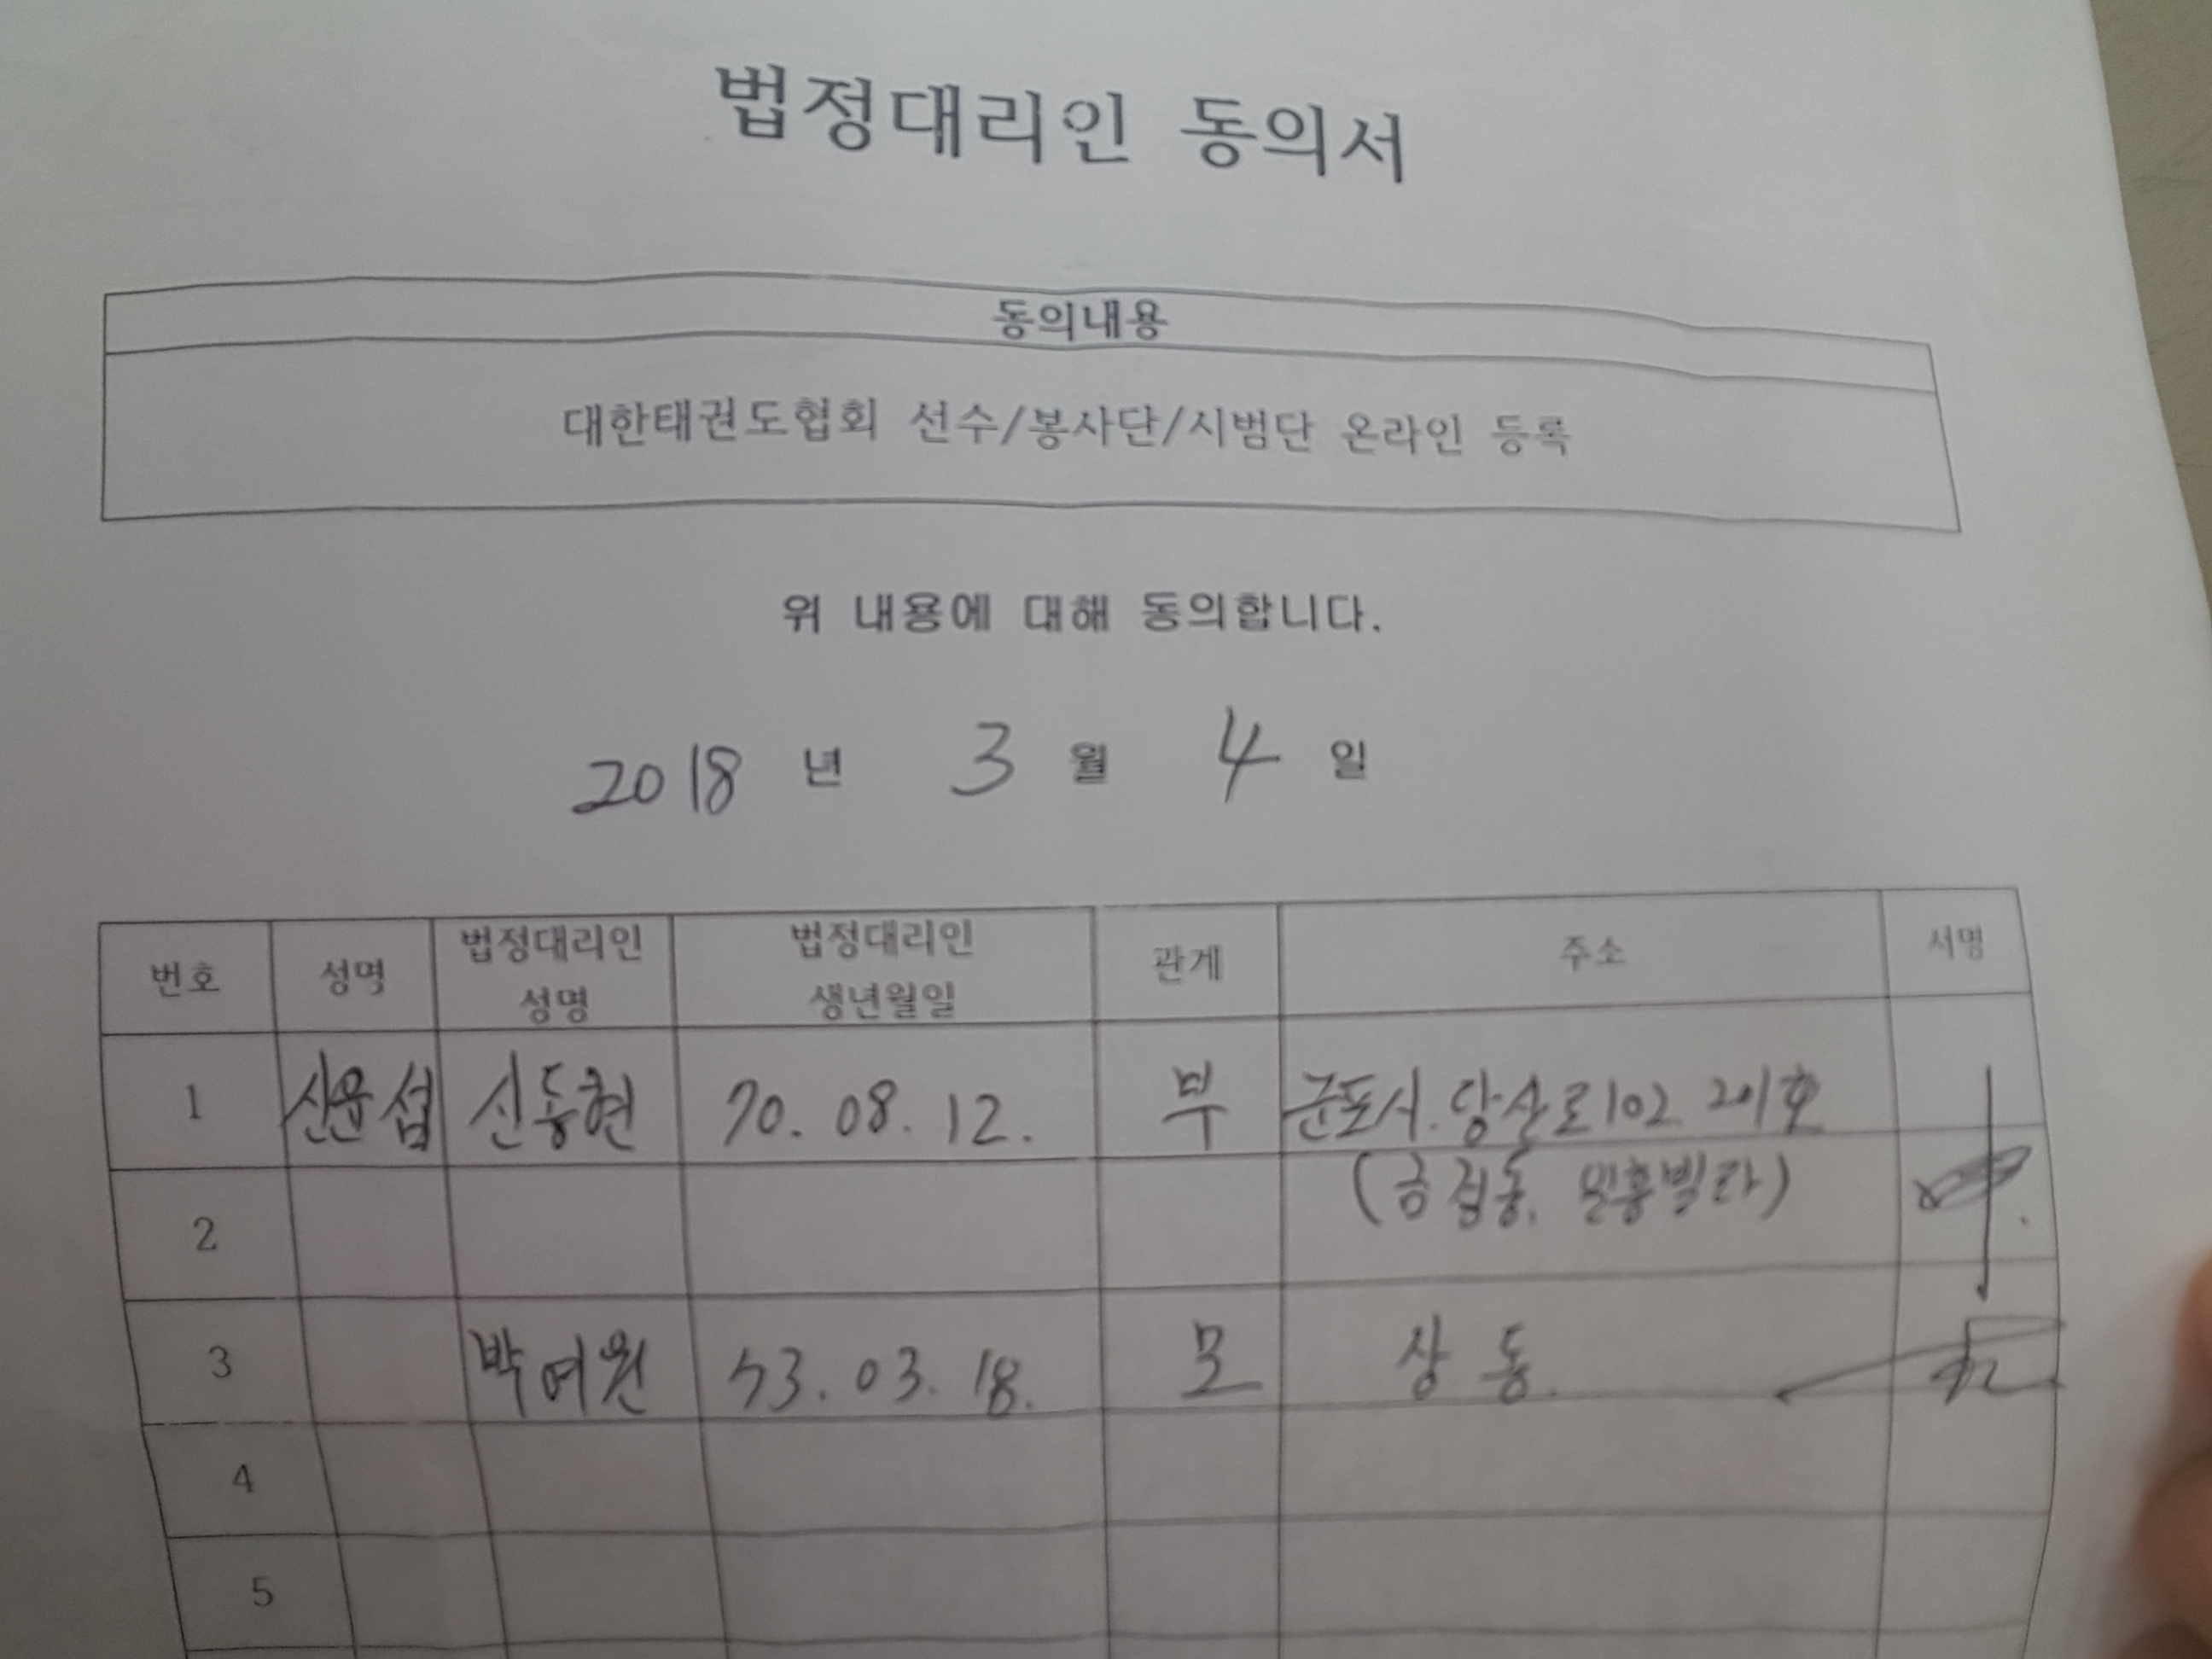 법정대리인 동의서
동의내용
대한태권도협회 선수/봉사단/시범단 온라인 등록
위 내용에 대해 동의합니다.
2018 년 3 월 4 일
번호 성명 법정대리인 성명 법정대리인 생년월일 관계 주소 서명
1 신윤섭 신동현 70. 08. 12. 부 군포시. 당산로 102 201호
2 (금정동, 빌라)
3 박여원 73. 03. 18. 모 상동.
4
5